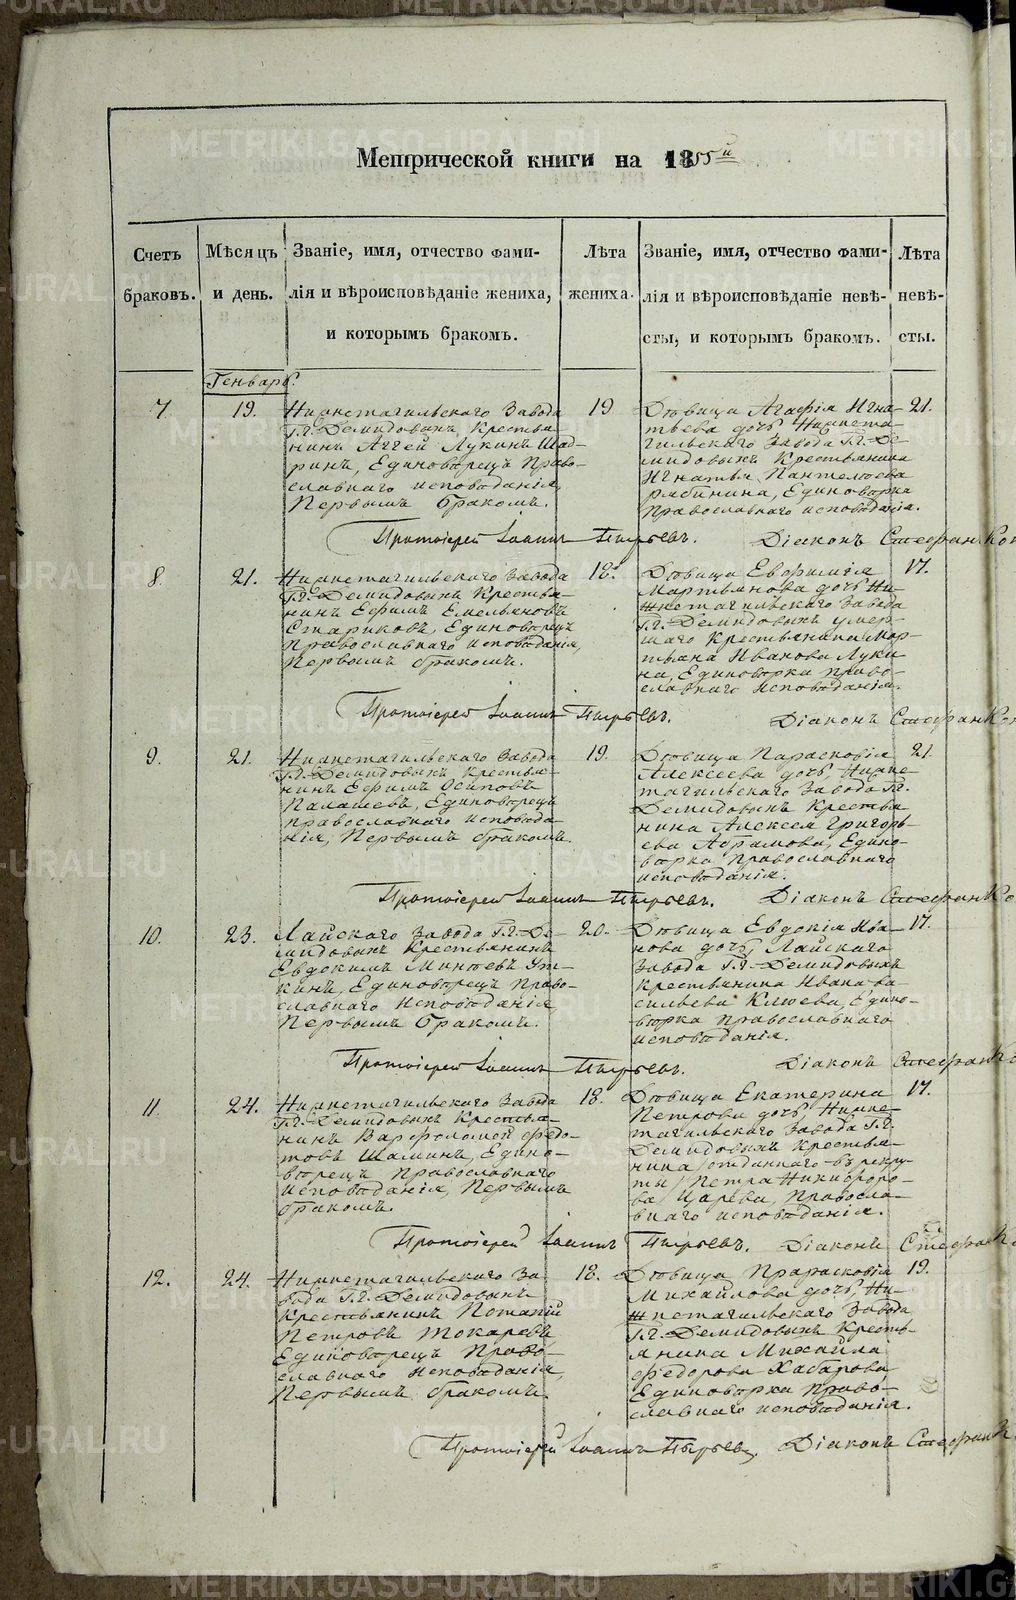 Метрической книги на 1855й
Счетъ браковъ.
Мѣсяцъ и день.
Званіе, имя, отчество фами-
лія и вѣроисповѣданіе жениха,
и которымъ бракомъ.
Лѣта жениха.
Званіе, имя, отчество фами-
лія и вѣроисповѣданіе невѣ-
сты, и которымъ бракомъ.
Лѣта невѣ-
сты.
Генварь.
7
19.
Нижнетагильскаго Завода
Г.г. Демидовыхъ Крестья-
нинъ Аггей Лукинъ Шад-
ринъ, Единоверецъ Право-
славнаго исповѣданія,
Первымъ бракомъ.
19
Дѣвица Агафія Игна-
тьева дочь Нижнета-
гильскаго Завода Г.г. Де-
мидовыхъ Крестьянина
Игнатья Пантелѣева
рябинина, Единовѣрка
Православнаго исповѣданія.
21.
Протоіерей Іоаннъ Пырьевъ. Діаконъ Стефан
8.
21.
Нижнетагильскаго Завода
Г.г. Демидовыхъ Крестья-
нинъ Ефимъ Емельяновъ
Стариковъ, Единоверецъ
Православнаго исповѣданія,
Первымъ бракомъ.
18.
Дѣвица Евфимія
Мартьянова дочь Ни-
жнетагильскаго Завода
Г.г. Демидовыхъ умер-
шаго Крестьянина Мар-
тьяна Иванова Луки-
на, Единовѣрка Право-
славнаго исповѣданія.
17.
Протоіерей Іоаннъ Пырьевъ. Діаконъ Стефан
9.
21.
Нижнетагильскаго Завода
Г.г. Демидовыхъ Крестья-
нинъ Ефимъ Осиповъ
Палашевъ, Единоверецъ
православнаго исповѣда-
нія, Первымъ бракомъ.
19.
Дѣвица Парасковія
Алексѣева дочь, Нижне-
тагильскаго Завода Г.г.
Демидовыхъ Крестья-
нина Алексея Григорь-
ева Абрамова, Едино-
вѣрка православнаго
исповѣданія.
21
Протоіерей Іоаннъ Пырьевъ. Діаконъ Стефан
10.
23.
Лайскаго Завода Г.г. Де-
мидовыхъ Крестьянинъ
Евдокимъ Минѣевъ Ут-
кинъ, Единоверецъ Право-
славнаго исповѣданія,
Первымъ бракомъ.
20.
Дѣвица Евдокія Ива-
нова дочь Лайскаго
Завода Г.г. Демидовыхъ
крестьянина Ивана Ва-
сильева Клюева, Едино-
вѣрка православнаго
исповѣданія.
17.
Протоіерей Іоаннъ Пырьевъ. Діаконъ Стефан
11.
24.
Нижнетагильскаго Завода
Г.г. Демидовыхъ Крестья-
нинъ Варфоломей Федо-
товъ Шаминъ, Едино-
верецъ Православнаго
исповѣданія, Первымъ
бракомъ.
18.
Дѣвица Екатерина
Петрова дочь, Нижне-
тагильскаго Завода Г.г.
Демидовыхъ Крестья-
нина /отданнаго въ рекру-
ты/ Петра Никифоро-
ва Царева, Правосла-
внаго исповѣданія.
17.
Протоіерей Іоаннъ Пырьевъ. Діаконъ Стефан
12.
24.
Нижнетагильскаго За-
вода Г.г. Демидовыхъ
Крестьянинъ Потапій
Петровъ Токаревъ
Единоверецъ Право-
славнаго исповѣданія,
Первымъ бракомъ.
18.
Дѣвица Прарасковія
Михайлова дочь, Ни-
жнетагильскаго Завода
Г.г. Демидовыхъ Кресть-
янина Михаила
Федорова Хабарова,
Единовѣрка Право-
славнаго исповѣданія.
19.
Протоіерей Іоаннъ Пырьевъ, Діаконъ Стефан
METRIKI.GASO-URAL.RU